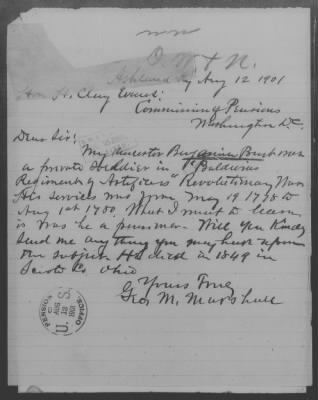 O. W. & N.
Ashland Ky Aug 12 1901
Hon H. Clay Evans:
Commissioner of Pensions
Washington D.C.
Dear Sir:
My Ancestor Benjamin Bush was
a private Soldier in "Baldwins
Regiment of Artificers" Revolutionary War
His services was from May 19 1778 to
Aug 1st 1780. What I want to learn
is was he a pensioner. Will you Kindly
Send me anything you may have upon
the subject He died in 1849 in
Scioto Co. Ohio
Yours Truly
Geo. M. Marshall
PENSION OFFICE
AUG
1901
U. S.